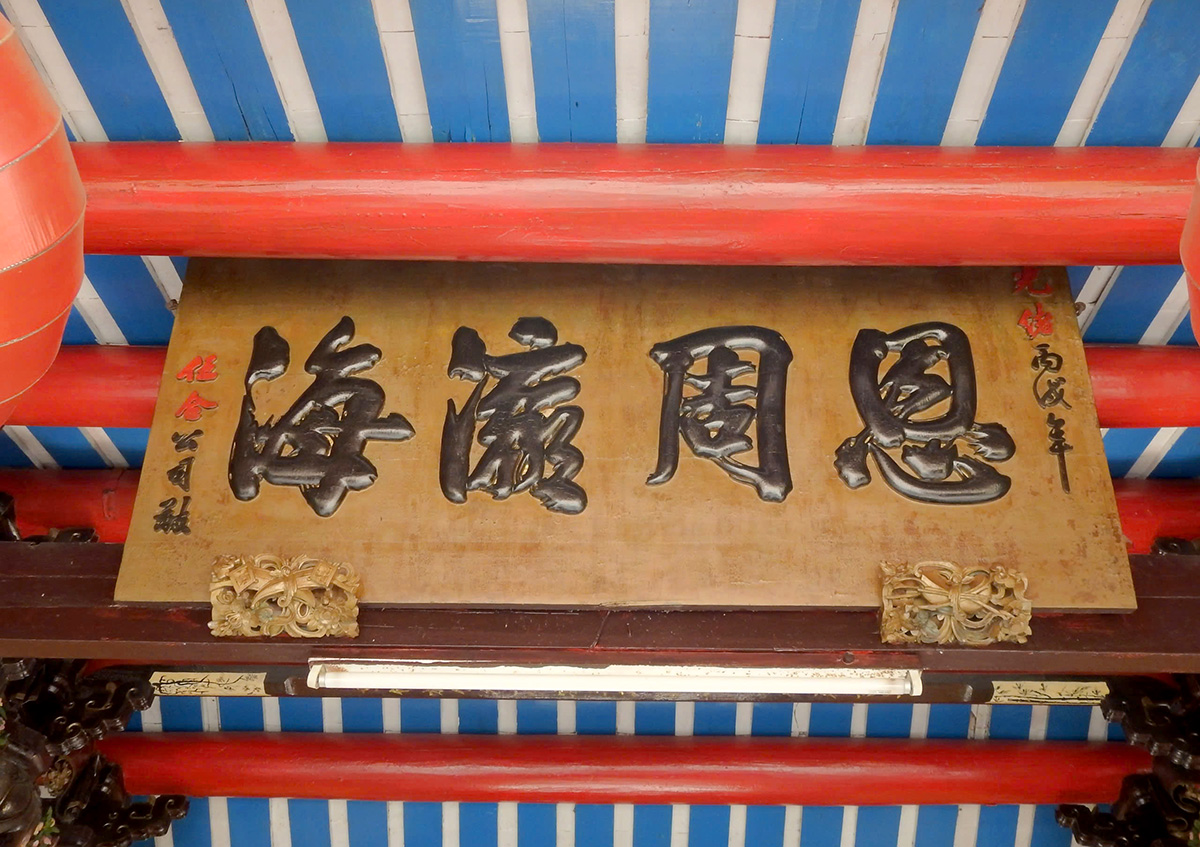 光緒丙戌年
恩周瀛海
伍合公司敬